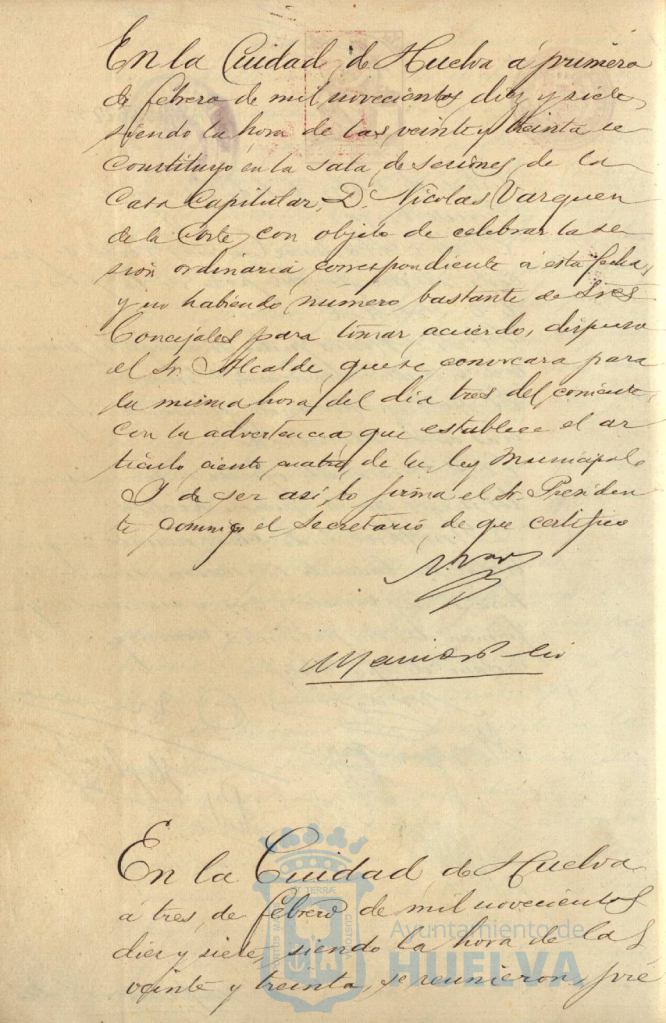 En la Ciudad de Huelva á primero
de febrero de mil novecientos diez y siete,
siendo la hora de las veinte y treinta se
constituyó en la sala de sesiones de la
Casa Capitular, D. Nicolas Vazquez
de la Corte, con objeto de celebrar la se
sion ordinaria correspondiente á esta fecha,
y no habiendo número bastante de Sres
Concejales para tomar acuerdo, dispuso
el Sr. Alcalde que se convocara para
la misma hora del dia tres del corriente,
con la advertencia que establece el ar
tículo ciento cuatro de la ley Municipal.
Y de ser asi, lo firma el Sr. Presiden
te conmigo el Secretario, de que certifico
En la Ciudad de Huelva
á tres de febrero de mil novecientos
diez y siete, siendo la hora de las
veinte y treinta, se reunieron, pré
Ayuntamiento de
HUELVA